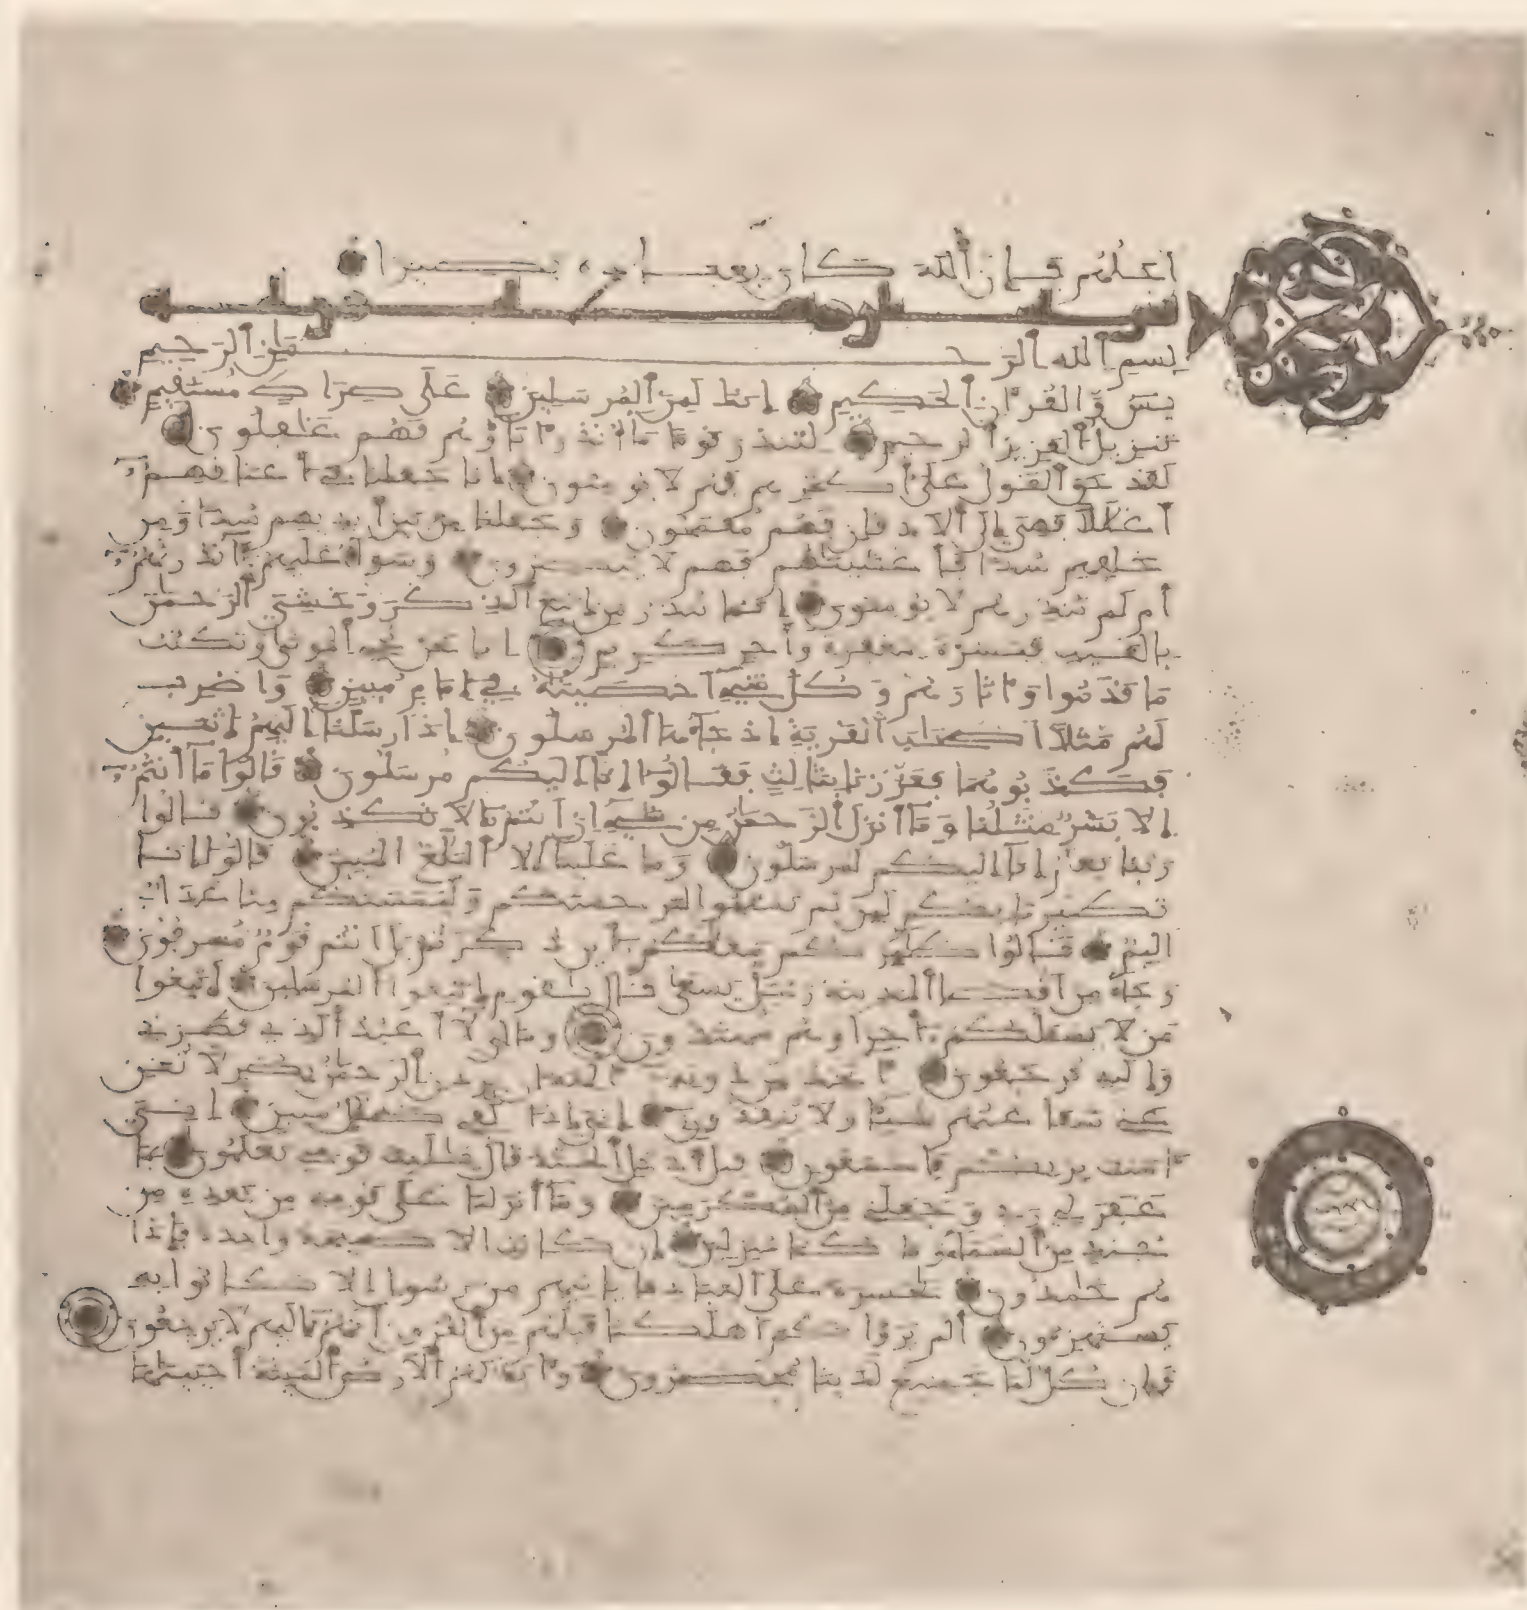 اجلهم فإن الله كان بعباده بصيرا
بسم الله الرحمن الرحيم
يس والقرءان الحكيم إنك لمن المرسلين على صراط مستقيم
تنزيل العزيز الرحيم لتنذر قوما ما أنذر ءاباؤهم فهم غافلون
لقد حق القول على أكثرهم فهم لا يؤمنون إنا جعلنا في أعناقهم
أغللا فهي إلى الاذقان فهم مقمحون وجعلنا من بين أيديهم سدا ومن
خلفهم سدا فأغشيناهم فهم لا يبصرون وسواء عليهم ءانذرتهم
أم لم تنذرهم لا يؤمنون إنما تنذر من اتبع الذكر وخشي الرحمان
بالغيب فبشره بمغفرة وأجر كريم إنا نحن نحي الموتى ونكتب
ما قدموا وءاثارهم وكل شيء احصيناه في إمام مبين واضرب
لهم مثلا اصحاب القرية إذ جاءها المرسلون إذ ارسلنا إليهم اثنين
فكذبوهما فعززنا بثالث فقالوا إنا إليكم مرسلون قالوا ما أنتم
إلا بشر مثلنا وما أنزل الرحمان من شيء ان انتم إلا تكذبون قالوا
ربنا يعلم إنا إليكم لمرسلون وما علينا إلا البلغ المبين قالوا إنا
تطيرنا بكم لين لم تنتهوا لنرجمنكم وليمسنكم منا عذاب
اليم قالوا طئركم معكم أين ذكرتم بل انتم قوم مسرفون
وجاء من اقصا المدينة رجل يسعى قال يقوم اتبعوا المرسلين اتبعوا
من لا يسئلكم أجرا وهم مهتدون وما لي لا أعبد الذي فطرني
وإليه ترجعون ءاتخذ من دونه ءالهة ان يردن الرحمان بضر لا تغن
عني شفاعتهم شيئا ولا ينقذون إني إذا لفي ضلل مبين إني
ءامنت بربكم فاسمعون قيل ادخل الجنة قال يليت قومي يعلمون بما
غفر لي ربي وجعلني من المكرمين وما أنزلنا على قومه من بعده من
جند من السماء وما كنا منزلين إن كانت الا صيحة واحدة فإذا
هم خامدون يحسرة على العباد ما ياتيهم من رسول الا كانوا به
يستهزءون ألم يروا كم اهلكنا قبلهم من القرون أنهم إليهم لا يرجعون
وإن كل لما جميع لدينا محضرون وءاية لهم الارض الميتة أحييناها